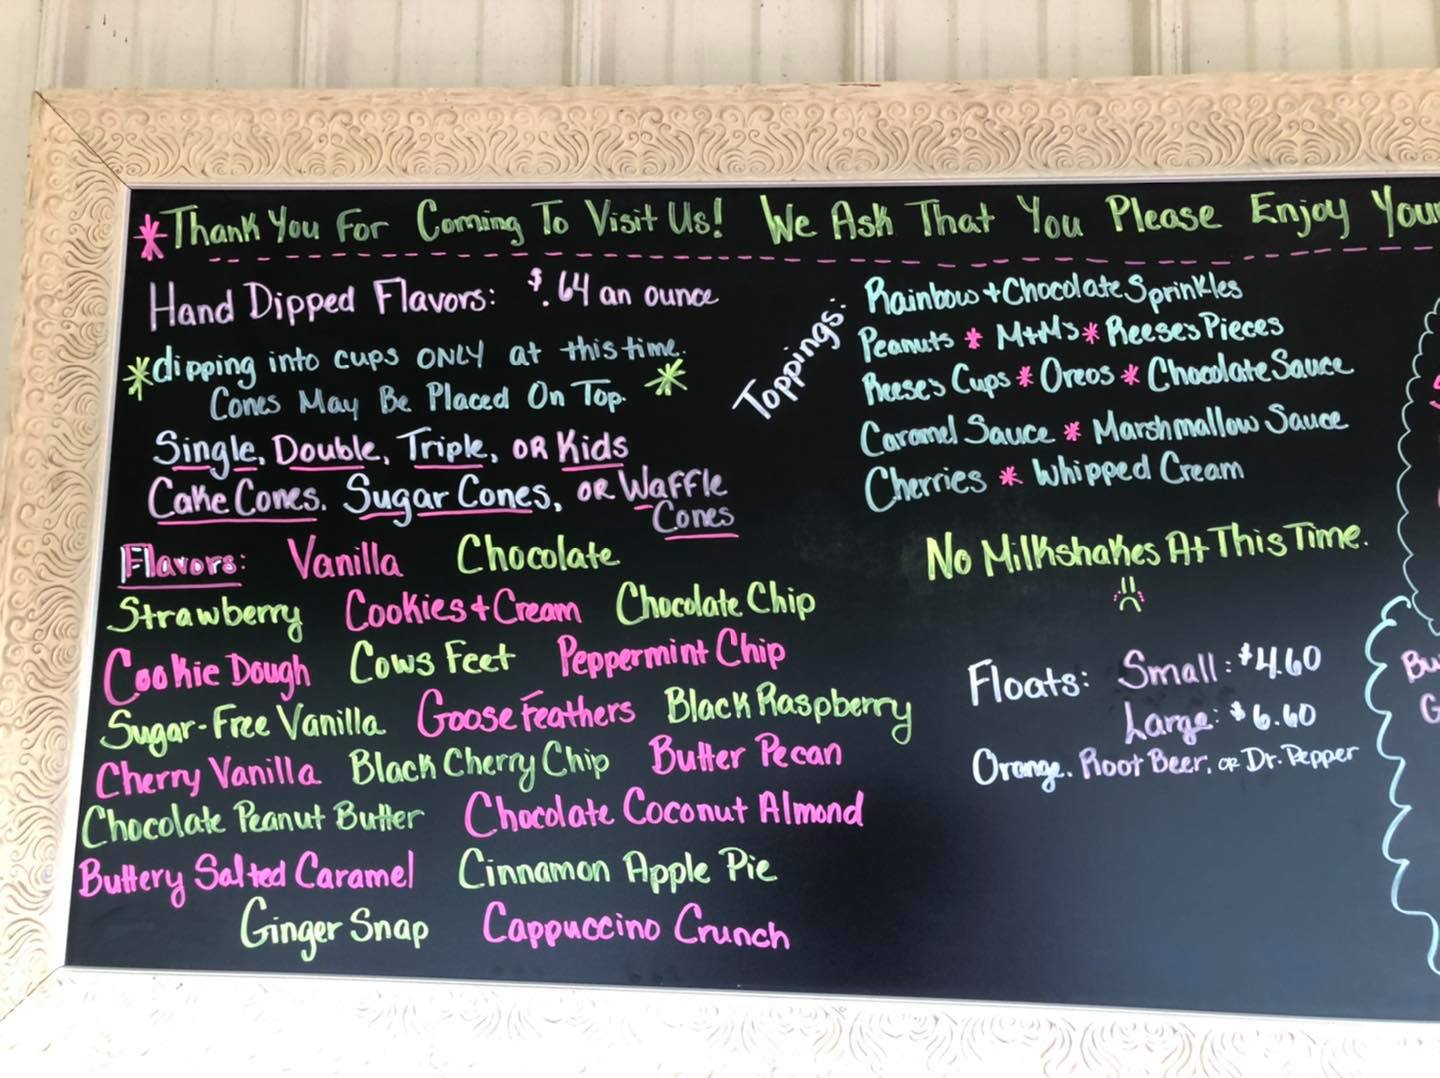 *Thank You For Coming To Visit Us! We Ask That You Please Enjoy Your
Hand Dipped Flavors: $.64 an ounce
*dipping into cups ONLY at this time.
Cones May Be Placed On Top. *
Single, Double, Triple, OR Kids
Cake Cones, Sugar Cones, OR Waffle
Cones
Flavors: Vanilla Chocolate
Strawberry Cookies + Cream Chocolate Chip
Cookie Dough Cows Feet Peppermint Chip
Sugar-Free Vanilla Goose Feathers Black Raspberry
Cherry Vanilla Black Cherry Chip Butter Pecan
Chocolate Peanut Butter Chocolate Coconut Almond
Buttery Salted Caramel Cinnamon Apple Pie
Ginger Snap Cappuccino Crunch
Toppings:
Rainbow + Chocolate Sprinkles
Peanuts * M+M's * Reese's Pieces
Reese's Cups * Oreos * Chocolate Sauce
Caramel Sauce * Marshmallow Sauce
Cherries * Whipped Cream
No Milkshakes At This Time.
Floats: Small: $4.60
Large: $6.60
Orange, Root Beer, OR Dr. Pepper